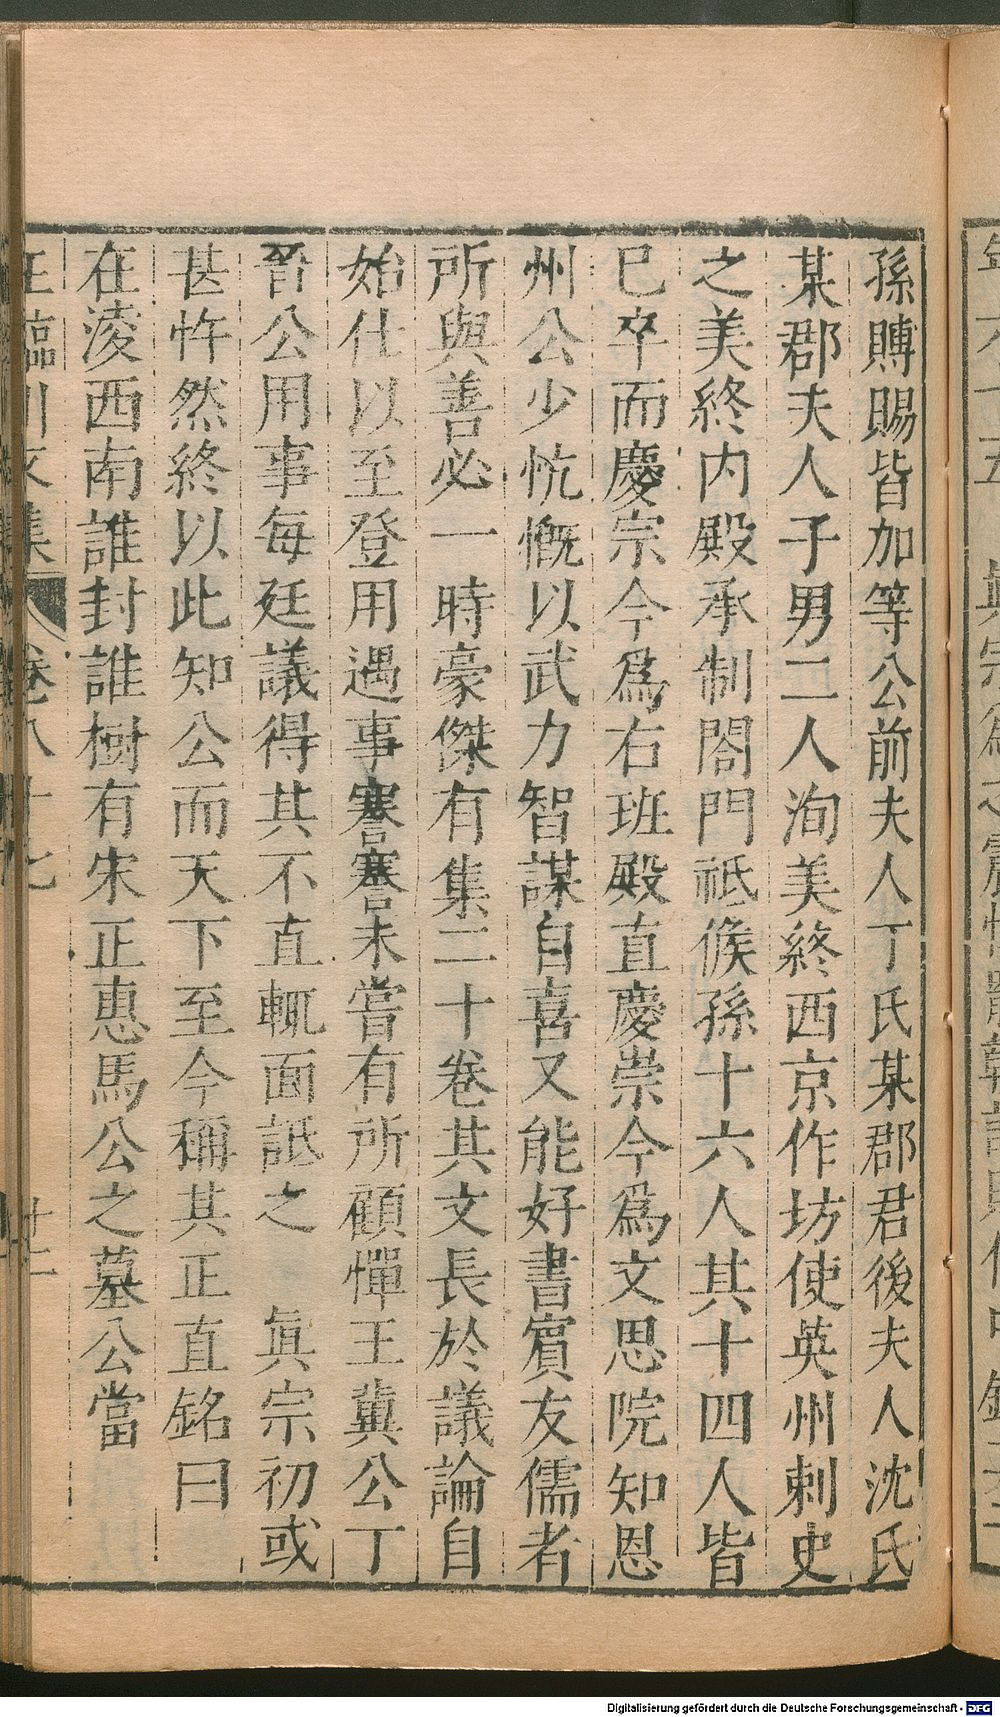 孫賻賜皆加等公前夫人丁氏某郡君後夫人沈氏
某郡夫人子男二人洵美終西京作坊使英州刺史
之美終内殿承制閤門祗候孫十六人其十四人皆
已卒而慶宗今爲右班殿直慶崇今爲文思院知恩
州公少忼慨以武力智謀自喜又能好書賓友儒者
所與善必一時豪傑有集二十卷其文長於議論自
始仕以至登用遇事謇謇未嘗有所顧憚王冀公丁
晉公用事每廷議得其不直輒面詆之 眞宗初或
甚忤然終以此知公而天下至今稱其正直銘曰
在淩西南誰封誰樹有宋正惠馬公之墓公當
王臨川文集 卷八十七 廿二
Digitalisierung gefördert durch die Deutsche Forschungsgemeinschaft - DFG